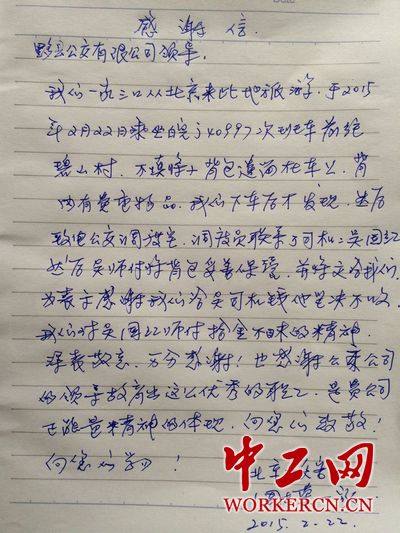 感谢信
黟县公交有限公司领导:
我们一家三口从北京来此地旅游,于2015
年2月22日乘坐皖J40997次班车前往
碧山村,不慎将背包遗留在车上,背
内有贵重物品。我们下车后才发现,然后
致电公交调度室,调度员联系了司机吴国红
然后吴师付将背包妥善保管,并转交给我们,
为表示感谢我们给吴司机钱他坚决不收。
我们对吴国红师付拾金不昧的精神
深表敬意,万分感谢!也感谢公交公司
的领导教育出这么优秀的职工,是贵公司
正能量精神的体现,向您们致敬!
向您们学习!
北京
一家
2015.2.22.
中工网
WORKERCN.CN